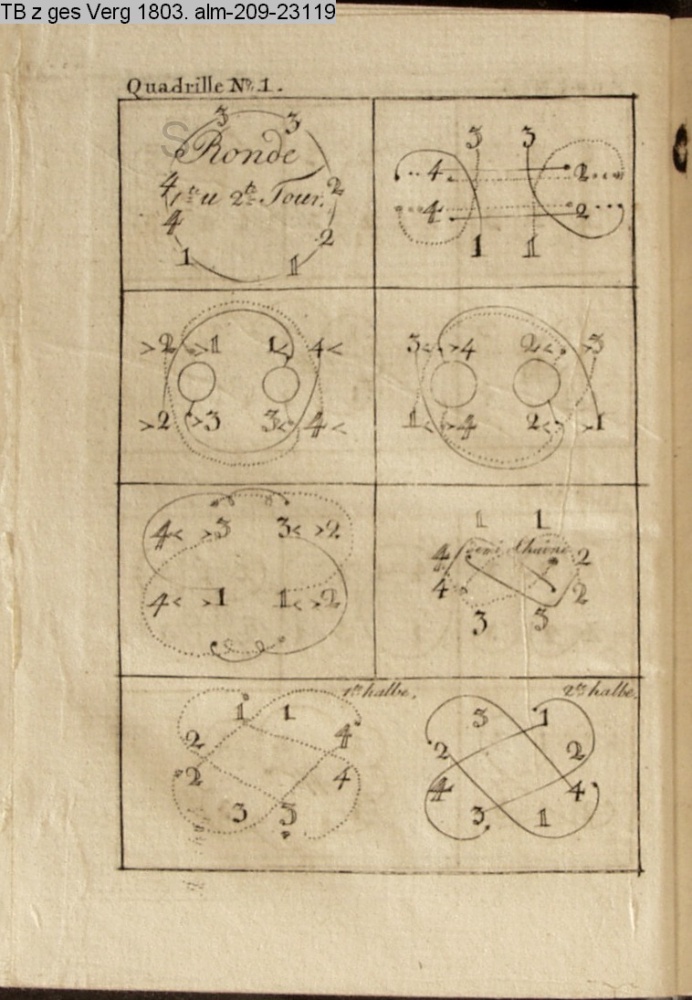 TB z ges Verg 1803. alm-209-23119
Quadrille No. 1.
3 3
Ronde
4 2
1te u 2te Tour.
4 2
1 1
3 3
4 2
4 2
1 1
>2 >1 1< 4<
>2 >3 3< 4<
3< >4 2< >3
1< >4 2< >1
4< >3 3< >2
4< >1 1< >2
1 1
4 Chaine 2
4 2
3 3
1te halbe.
1 1
2 4
2 4
3 3
2te halbe.
3 1
2 2
4 4
3 1